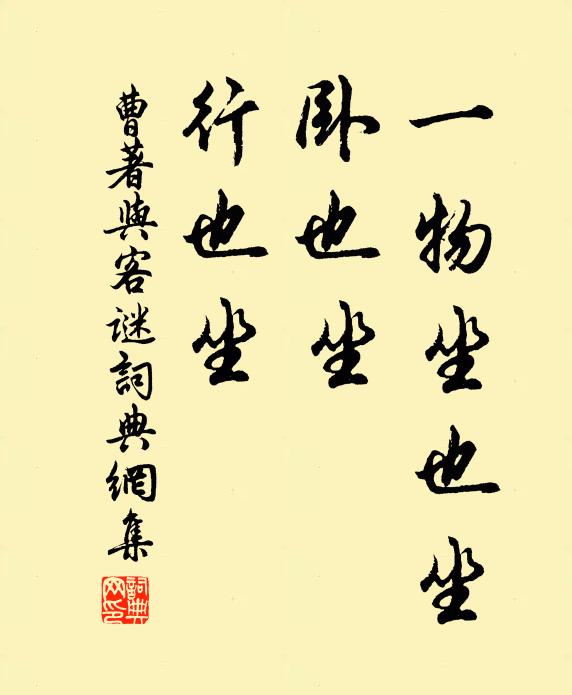 一物坐也坐
卧也坐
行也坐
曹著與客谜詞典網集
詞典
网印